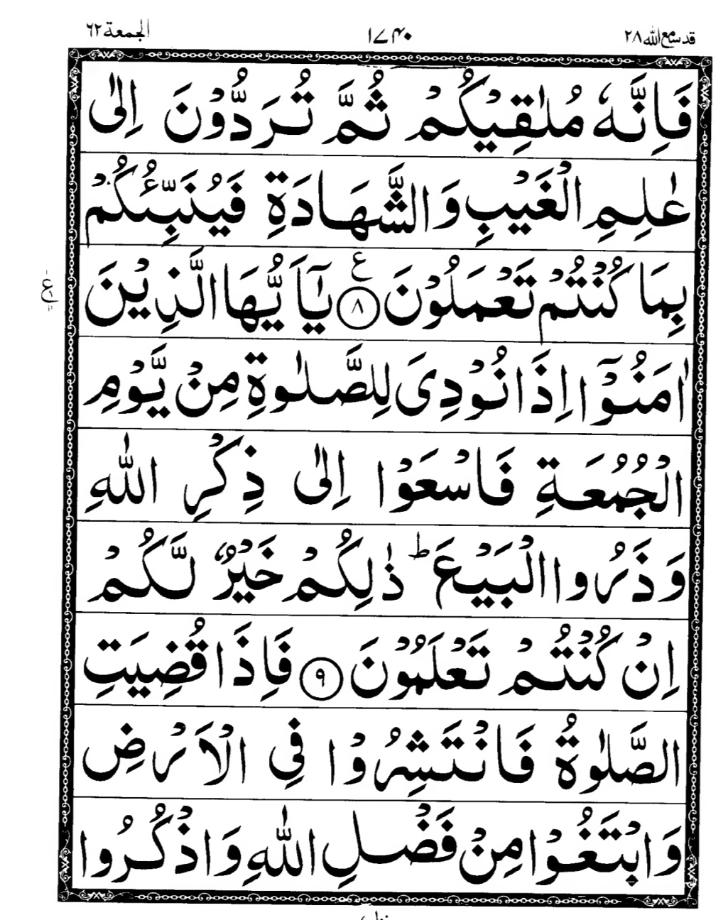 قد سمع الله ٢٨ ١٧۴۰ الجمعة ٦٢
فَاِنَّهٗ مُلٰقِيْكُمْ ثُمَّ تُرَدُّوْنَ اِلٰى
عٰلِمِ الْغَيْبِ وَالشَّهَادَةِ فَيُنَبِّئُكُمْ
بِمَا كُنْتُمْ تَعْمَلُوْنَ ۝٨ ع يٰۤاَيُّهَا الَّذِيْنَ
ع
اٰمَنُوْۤا اِذَا نُوْدِىَ لِلصَّلٰوةِ مِنْ يَّوْمِ
الْجُمُعَةِ فَاسْعَوْا اِلٰى ذِكْرِ اللّٰهِ
وَذَرُوا الْبَيْعَ ؕ ذٰلِكُمْ خَيْرٌ لَّكُمْ
اِنْ كُنْتُمْ تَعْلَمُوْنَ ۝٩ فَاِذَا قُضِيَتِ
الصَّلٰوةُ فَانْتَشِرُوْا فِى الْاَرْضِ
وَابْتَغُوْا مِنْ فَضْلِ اللّٰهِ وَاذْكُرُوا